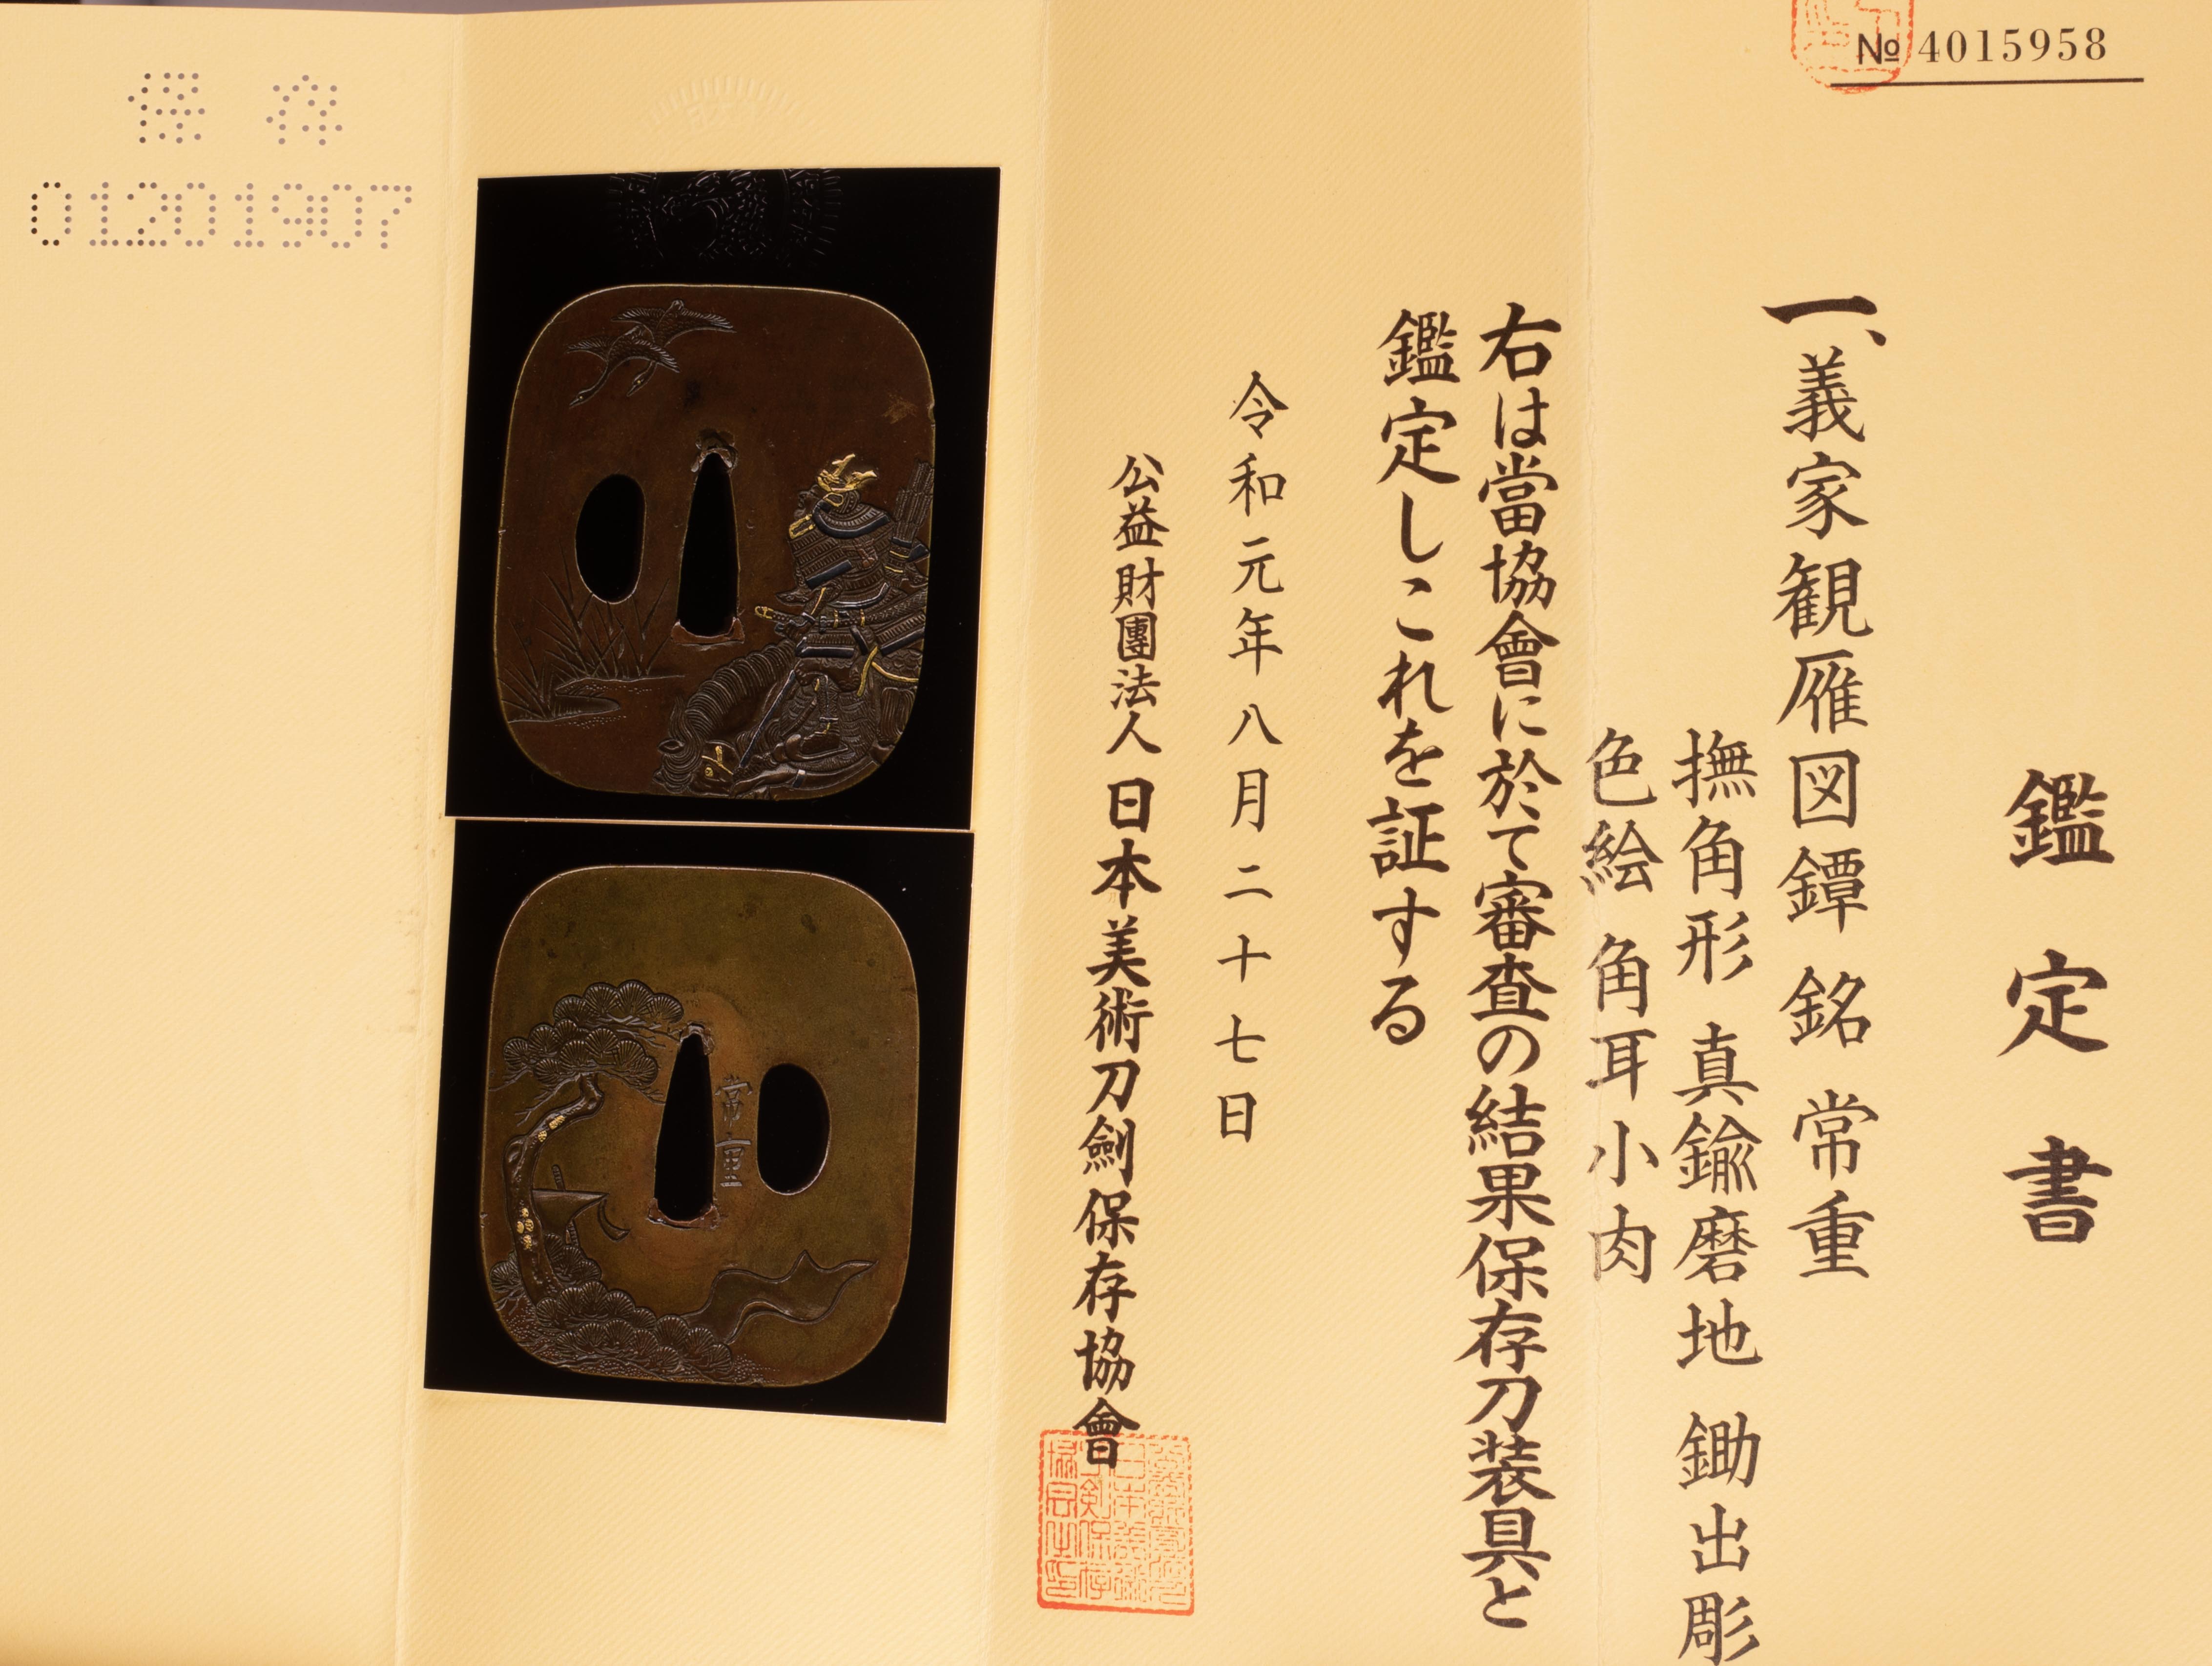 № 4015958
鑑定書
一、義家観雁図鐔 銘 常重
撫角形 真鍮磨地 鋤出彫
色絵 角耳小肉
右は當協會に於て審査の結果保存刀装具と
鑑定しこれを証する
令和元年八月二十七日
公益財團法人 日本美術刀劍保存協會
常重
保存
01201907